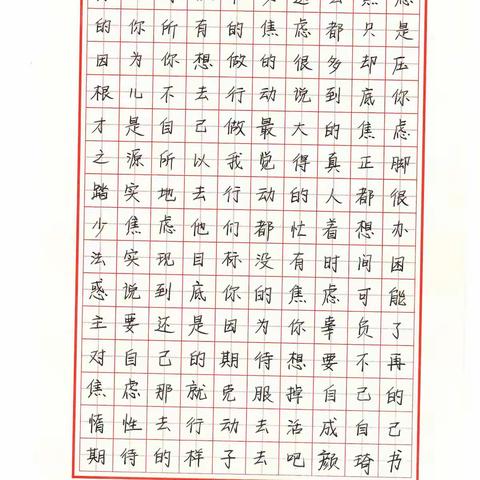 的你所有的焦虑都只是
因为你想做的很多却压
根儿不去行动说到底你
才是自己做最大的焦虑
之源所以我觉得真正脚
踏实地去行动的人都很
少焦虑他们都忙着想办
法实现目标没有时间困
惑说到底你的焦虑可能
主要还是因为你辜负了
对自己的期待想要不再
焦虑那就克服掉自己的
惰性去行动去活成自己
期待的样子去吧颜琦书